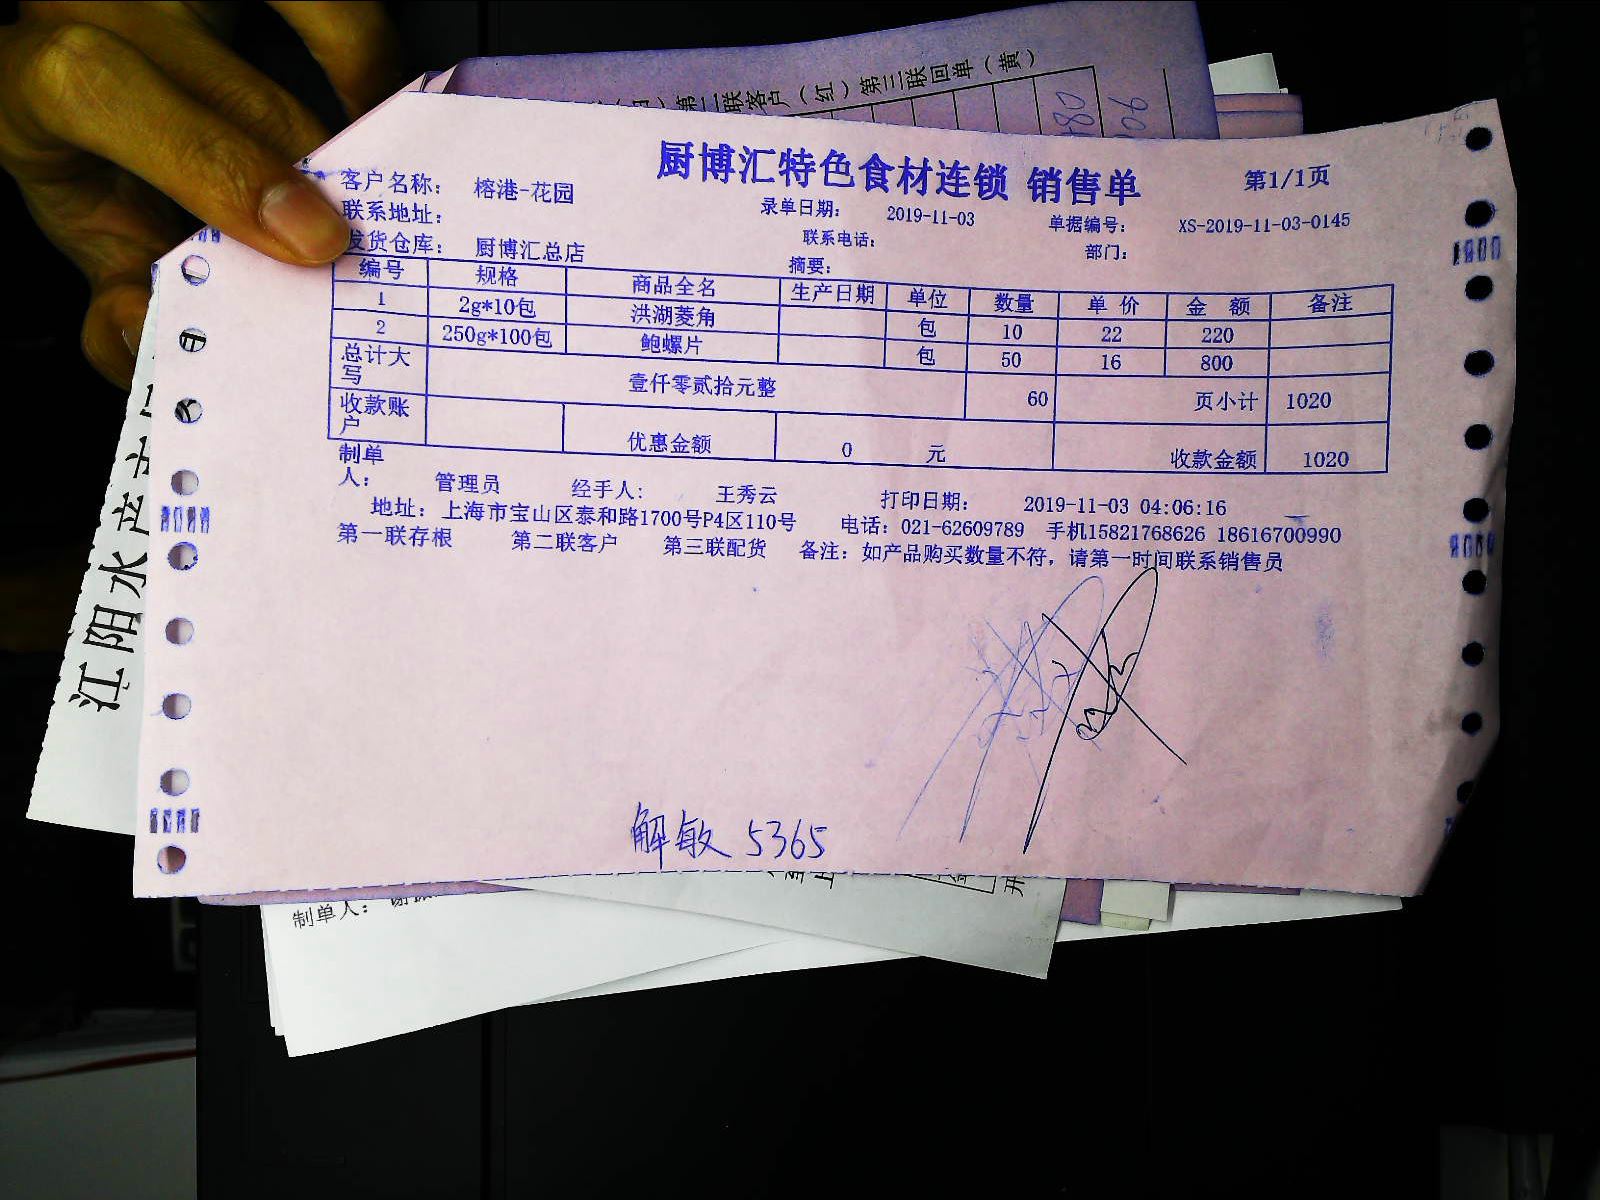 第二联客户（红）第三联回单（黄）
厨博汇特色食材连锁 销售单 第1/1页
客户名称： 榕港-花园 录单日期： 2019-11-03 单据编号： XS-2019-11-03-0145
联系地址： 联系电话： 部门：
发货仓库： 厨博汇总店 摘要：
编号 规格 商品全名 生产日期 单位 数量 单价 金额 备注
1 2g*10包 洪湖菱角 包 10 22 220
2 250g*100包 鲍螺片 包 50 16 800
总计大写 壹仟零贰拾元整 60 页小计 1020
收款账户 优惠金额 0 元 收款金额 1020
制单人： 管理员 经手人： 王秀云 打印日期： 2019-11-03 04:06:16
地址：上海市宝山区泰和路1700号P4区110号 电话：021-62609789 手机15821768626 18616700990
第一联存根 第二联客户 第三联配货 备注：如产品购买数量不符，请第一时间联系销售员
解敏 5365
江阳水产
制单人：